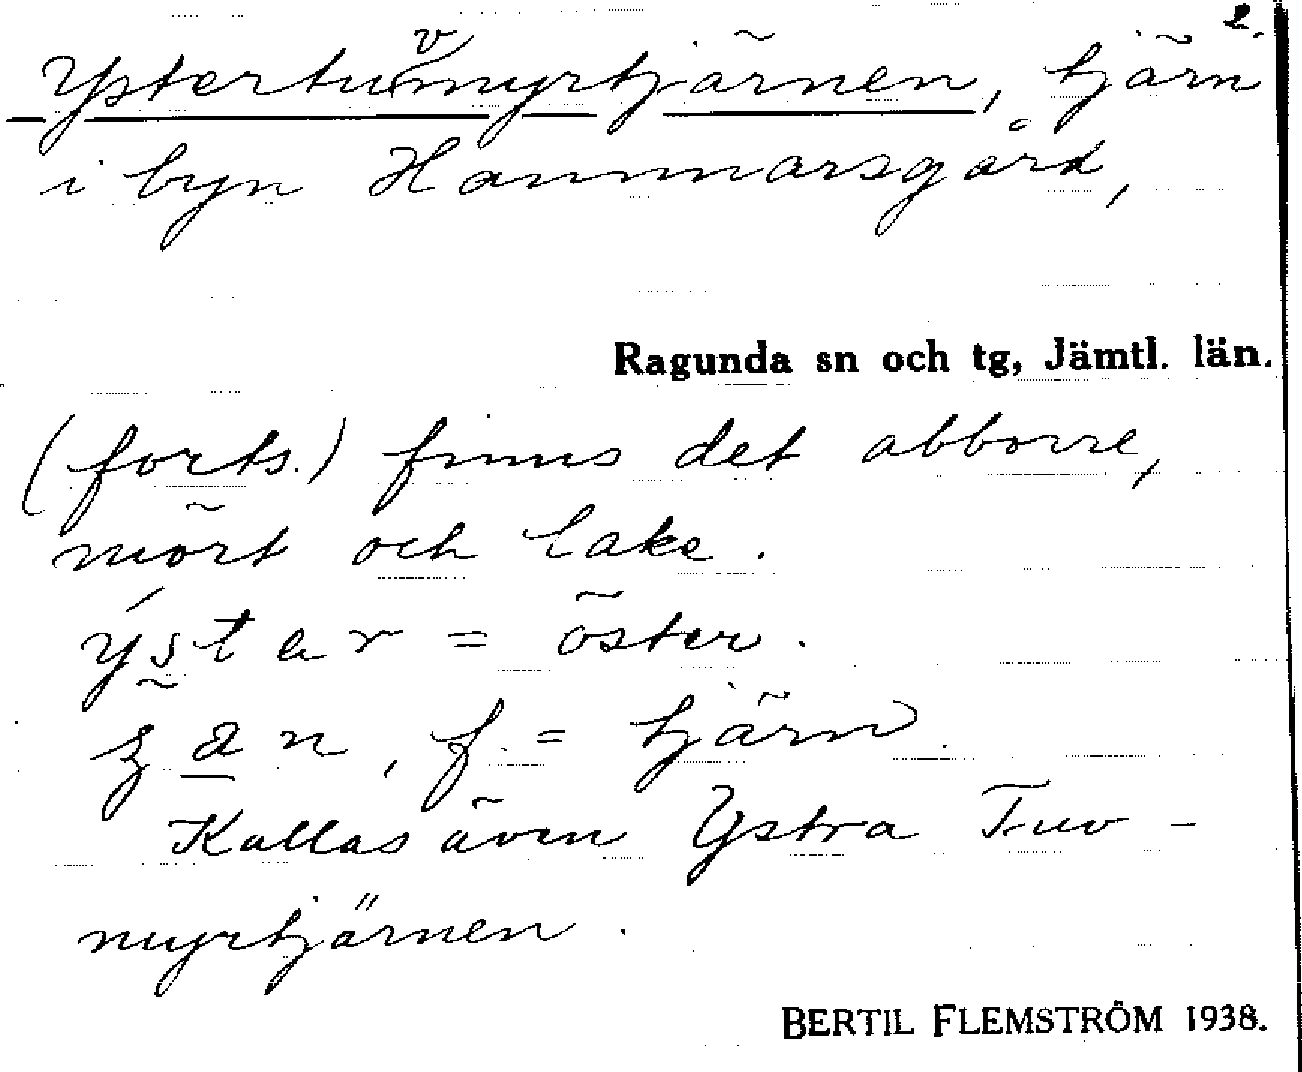 2.
Ystertuvmyrtjärnen, tjärn
i byn Hammarsgård,
Ragunda sn och tg, Jämtl. län.
(forts.) finns det abborre,
mört och lake.
ýster = öster.
, f. = tjärn
Kallas även Ystra Tuv-
myrtjärnen.
BERTIL FLEMSTRÖM 1938.